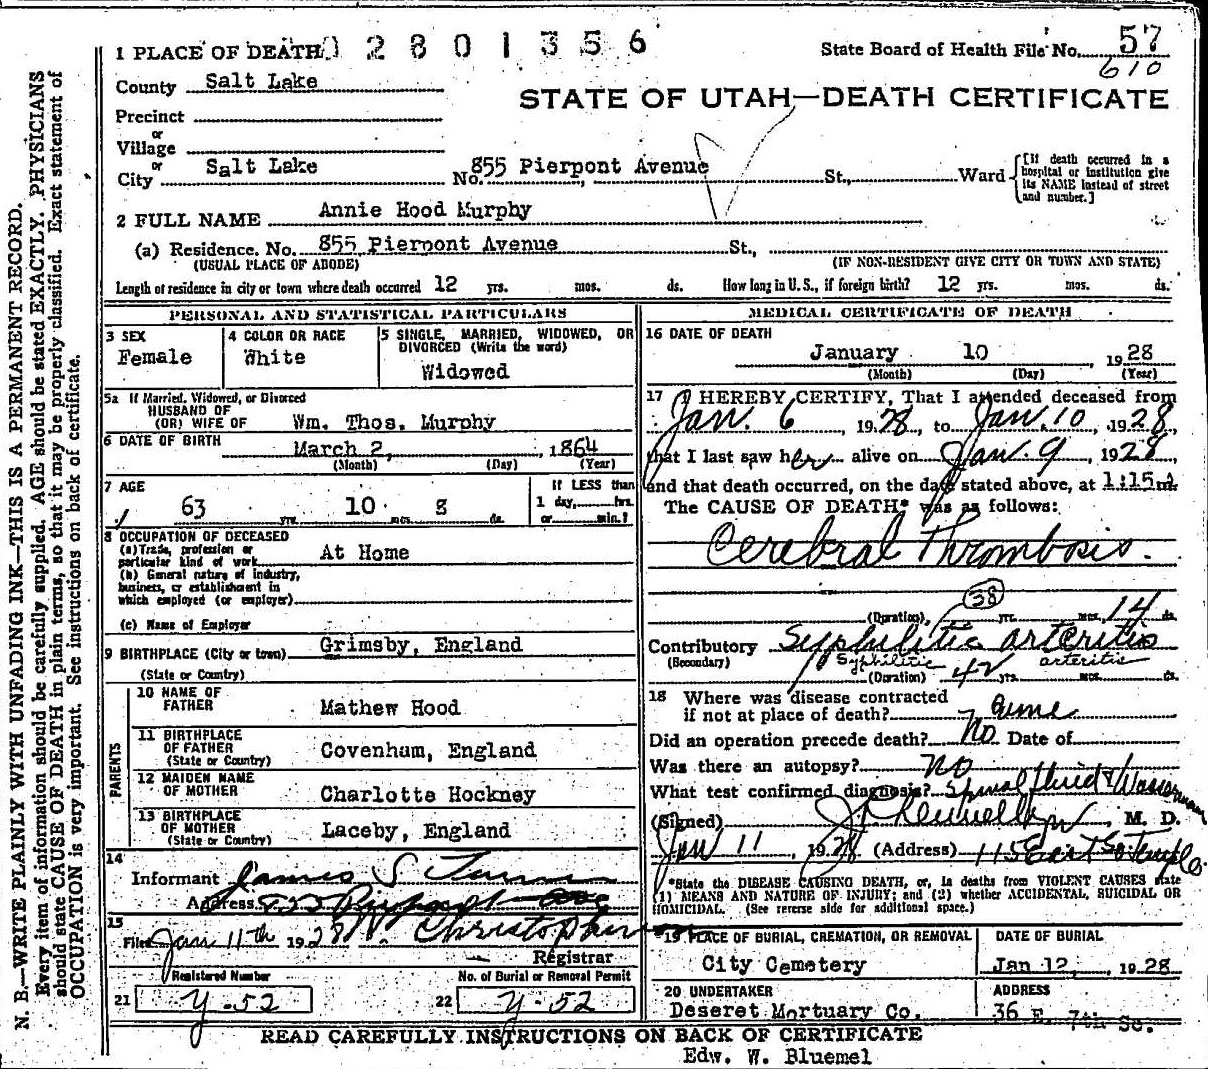 N. B.—WRITE PLAINLY WITH UNFADING INK—THIS IS A PERMANENT RECORD.
Every item of information should be carefully supplied. AGE should be stated EXACTLY. PHYSICIANS
should state CAUSE OF DEATH in plain terms, so that it may be properly classified. Exact statement of
OCCUPATION is very important. See instructions on back of certificate.
1 PLACE OF DEATH 2801356
State Board of Health File No. 57
610
County Salt Lake
STATE OF UTAH—DEATH CERTIFICATE
Precinct
or
Village
or
City Salt Lake No. 855 Pierpont Avenue St., Ward
[If death occurred in a
hospital or institution give
its NAME instead of street
and number.]
2 FULL NAME Annie Hood Murphy
(a) Residence. No. 855 Pierpont Avenue St.,
(USUAL PLACE OF ABODE) (IF NON-RESIDENT GIVE CITY OR TOWN AND STATE)
Length of residence in city or town where death occurred 12 yrs. mos. ds. How long in U. S., if foreign birth? 12 yrs. mos. ds.
PERSONAL AND STATISTICAL PARTICULARS
3 SEX
Female
4 COLOR OR RACE
White
5 SINGLE, MARRIED, WIDOWED, OR
DIVORCED (Write the word)
Widowed
5a If Married, Widowed, or Divorced
HUSBAND OF
(OR) WIFE OF Wm. Thos. Murphy
6 DATE OF BIRTH
March 2, , 1864
(Month) (Day) (Year)
7 AGE
63 yrs. 10 mos. 8 ds.
If LESS than
1 day, hrs.
or min.?
8 OCCUPATION OF DECEASED
(a) Trade, profession or
particular kind of work At Home
(b) General nature of industry,
business, or establishment in
which employed (or employer)
(c) Name of Employer
9 BIRTHPLACE (City or town) Grimsby, England
(State or Country)
PARENTS
10 NAME OF
FATHER Mathew Hood
11 BIRTHPLACE
OF FATHER Covenham, England
(State or Country)
12 MAIDEN NAME
OF MOTHER Charlotte Hockney
13 BIRTHPLACE
OF MOTHER Laceby, England
(State or Country)
14
Informant James S
Address
15
Filed Jan 11th 1928
Registrar
Registered Number No. of Burial or Removal Permit
21 Y-52 22 Y-52
MEDICAL CERTIFICATE OF DEATH
16 DATE OF DEATH
January 10 1928
(Month) (Day) (Year)
17 I HEREBY CERTIFY, That I attended deceased from
Jan. 6 1928, to Jan. 10, 1928,
that I last saw her alive on Jan. 9, 1928,
and that death occurred, on the date stated above, at 1:15 m.
The CAUSE OF DEATH* was as follows:
Cerebral Thrombosis.
38
(Duration) yrs. mos. 14 ds.
Contributory Syphilitic arteritis
(Secondary) Syphilitic arteritis
(Duration) 42 yrs. mos. ds.
18 Where was disease contracted
if not at place of death?
Did an operation precede death? No Date of
Was there an autopsy? No
What test confirmed diagnosis? Spinal fluid & Wasserman
(Signed) , M. D.
Jan 11, 1928 (Address) 115 East So. Temple
*State the DISEASE CAUSING DEATH, or, in deaths from VIOLENT CAUSES state
(1) MEANS AND NATURE OF INJURY; and (2) whether ACCIDENTAL, SUICIDAL OR
HOMICIDAL. (See reverse side for additional space.)
19 PLACE OF BURIAL, CREMATION, OR REMOVAL
City Cemetery
DATE OF BURIAL
Jan 12, 1928
20 UNDERTAKER
Deseret Mortuary Co.
ADDRESS
36 E. 7th So.
READ CAREFULLY INSTRUCTIONS ON BACK OF CERTIFICATE
Edw. W. Bluemel